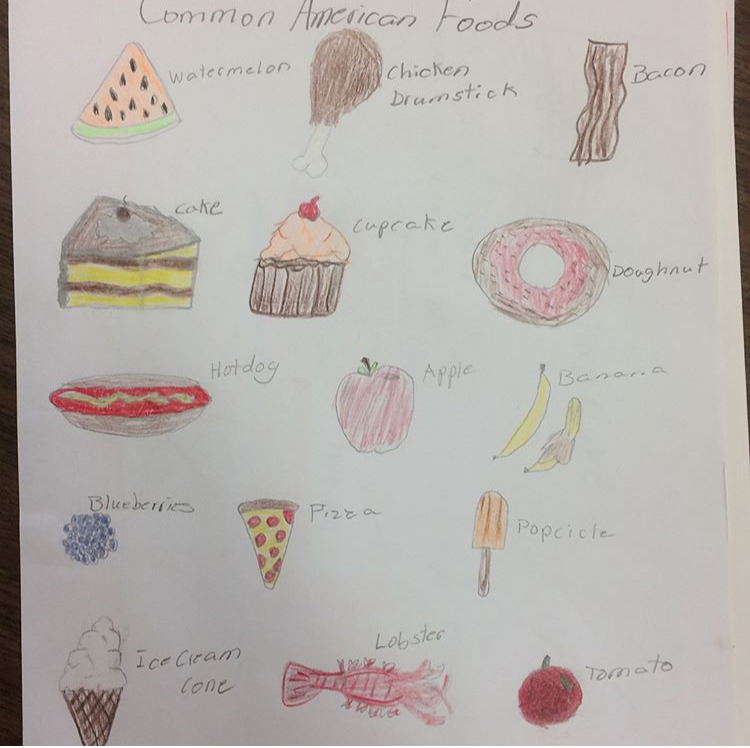 Common American Foods
Watermelon
Chicken
Drumstick
Bacon
Cake
Cupcake
Doughnut
Hotdog
Apple
Banana
Blueberries
Pizza
Popcicle
Ice Cream
Cone
Lobster
Tomato